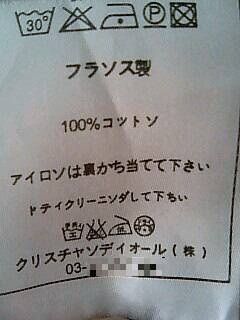 30°
P
フラソス製
100%コットソ
アイロソは裏かち当てて下さい
トティクリーニンダして下ちい
クリスチャソディオール.(株)
03-